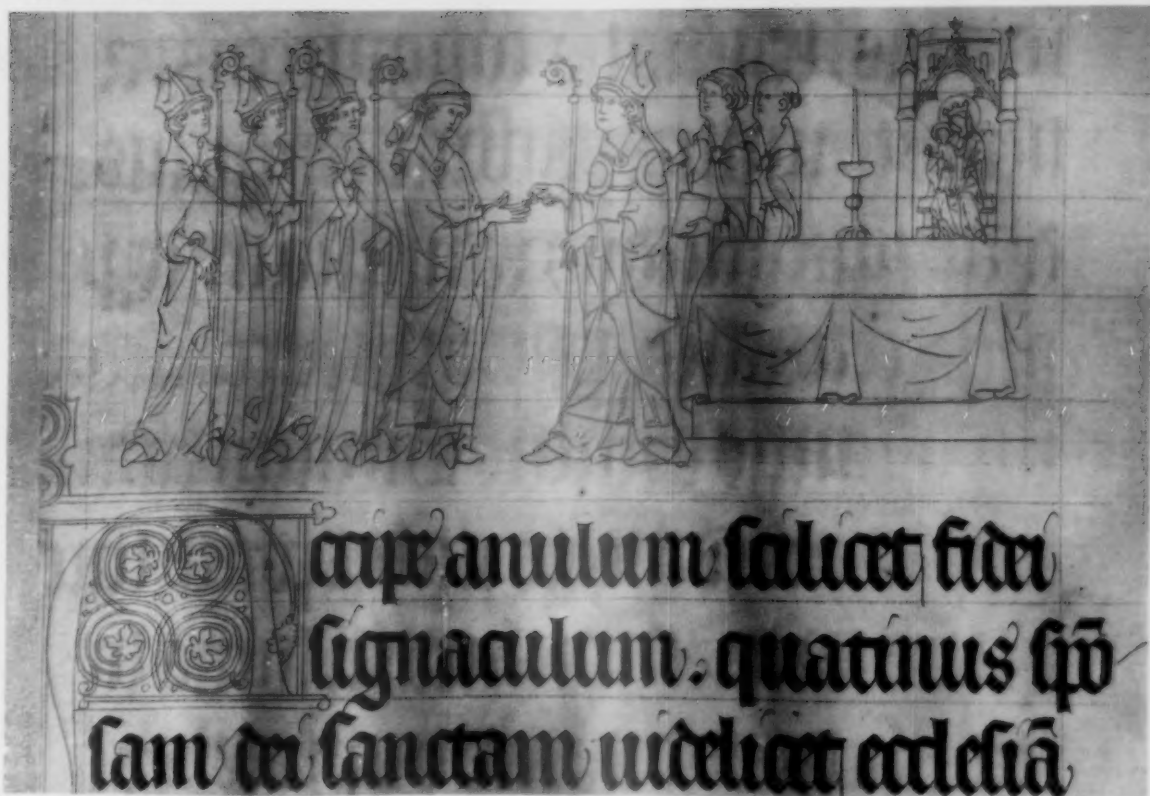 Accipe anulum scilicet fidei
signaculum. quatinus spō
sam dei sanctam uidelicet ecclesiā